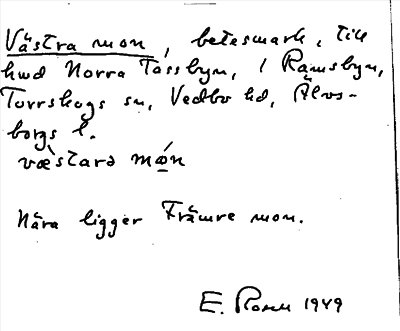 Västra mon, betesmark, till
hmd Norra Tassbyn, i Rämsbyn,
Torrskogs sn, Vedbo hd, Älvs-
borgs l.
væ̀starə møń
Nära ligger Främre mon.
E. Rosell 1949